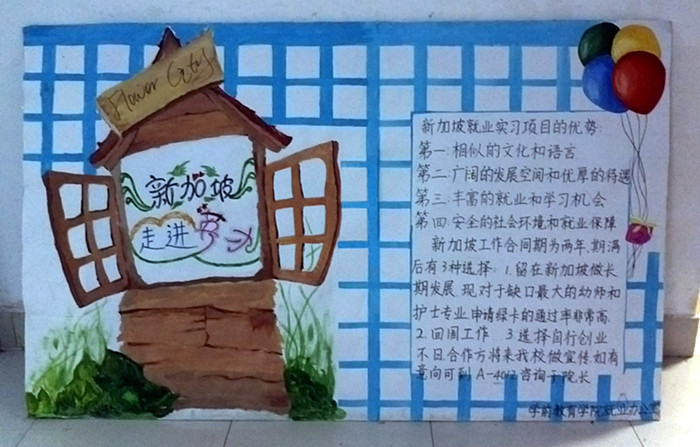 Flower City
新加坡
走进
新加坡就业实习项目的优势:
第一:相似的文化和语言
第二:广阔的发展空间和优厚的待遇
第三:丰富的就业和学习机会
第四:安全的社会环境和就业保障
新加坡工作合同期为两年,期满
后有3种选择:1.留在新加坡做长
期发展.现对于缺口最大的幼师和
护士专业,申请绿卡的通过率非常高.
2.回国工作 3.选择自行创业
不日合作方将来我校做宣传.如有
意向可到A-4012咨询于院长
学前教育学院就业办公室